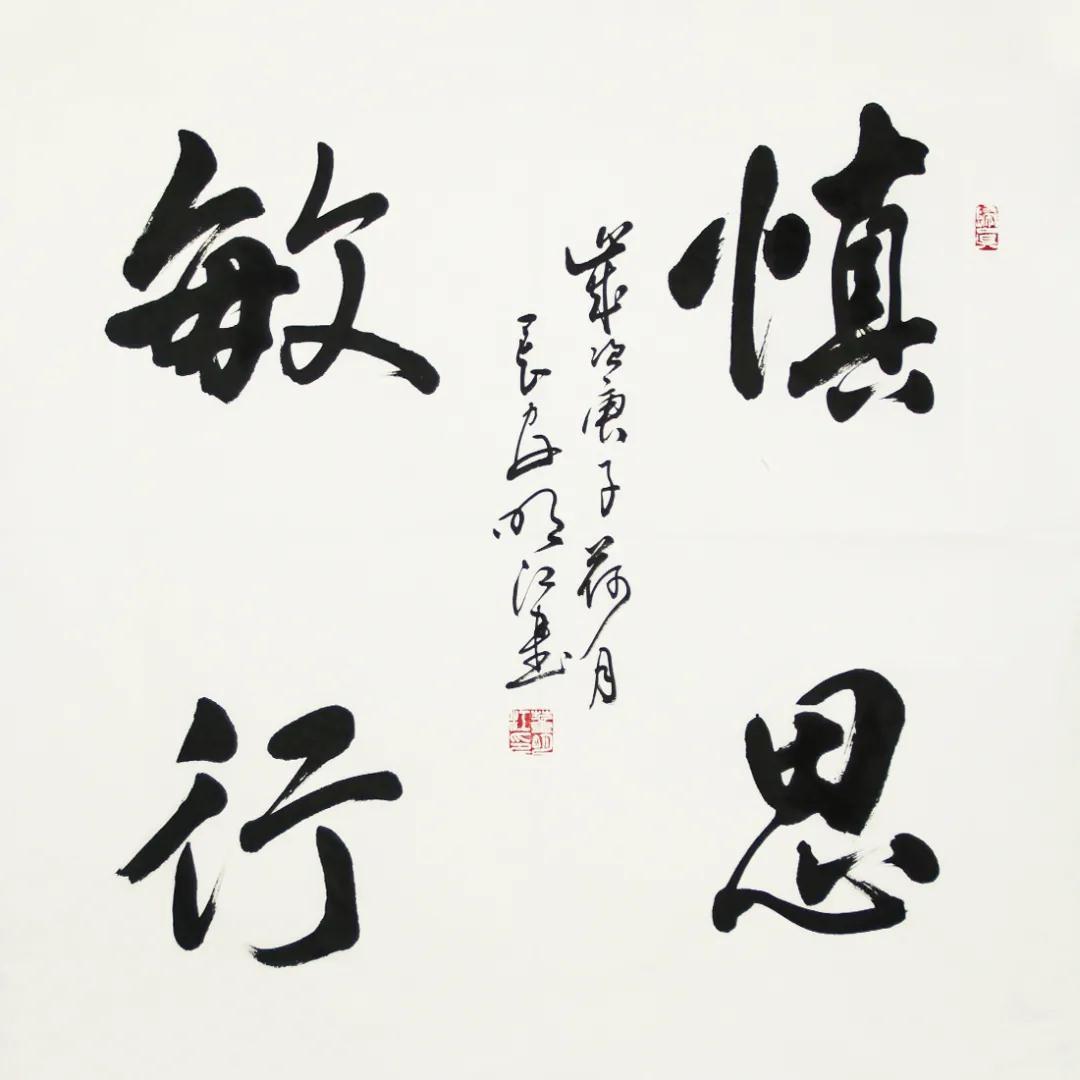 慎思
敏行
岁次庚子荷月
长安明江书